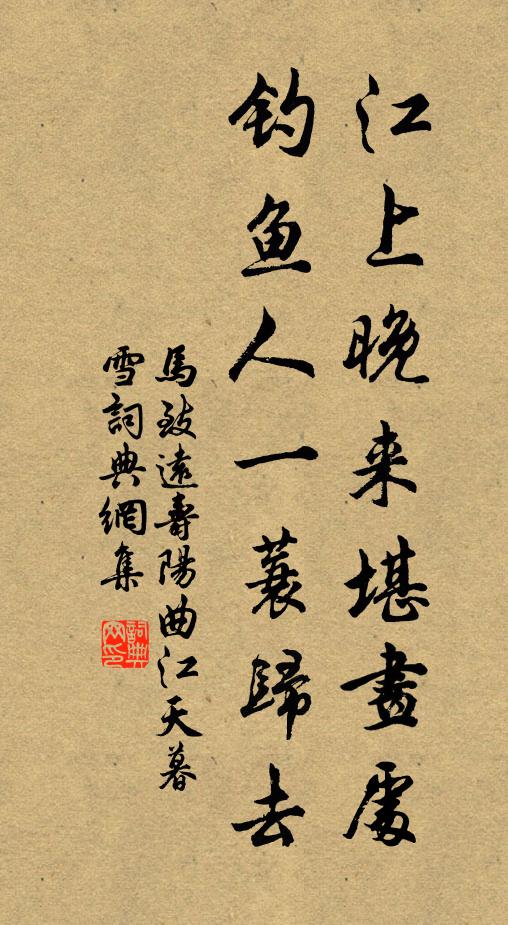 江上晚来堪畫處
钓鱼人一蓑歸去
馬致遠壽陽曲江天暮
雪詞典網集
詞典网印